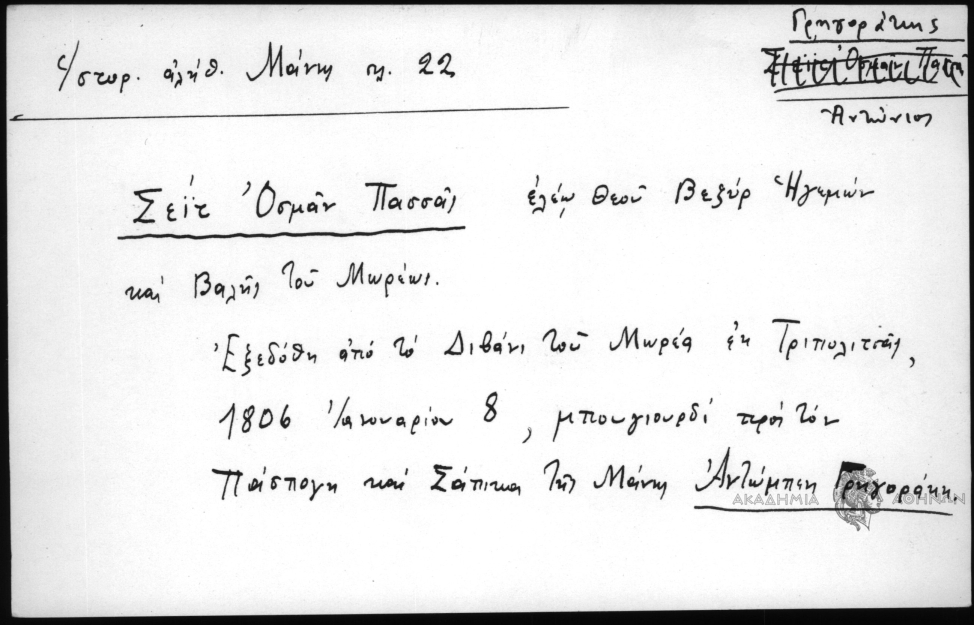 Γρηγοράκης
Ἱστορ. ἀλήθ. Μάνης σ. 22
Σεὶτ Ὀσμὰν Πασσᾶς
Ἀντώνιος
Σεὶτ Ὀσμὰν Πασσᾶς ἐλέῳ Θεοῦ Βεζὺρ Ἡγεμών
καὶ Βαλῆς τοῦ Μωρέως.
Ἐξεδόθη ἀπὸ τὸ Διβάνι τοῦ Μωρέα ἐκ Τριπολιτσᾶς,
1806 Ἰανουαρίου 8, μπουγιουρδὶ πρὸς τὸν
Πάσπογη καὶ Σάπικα τῆς Μάνης Ἀντώμπεη Γρηγοράκη.
ΑΚΑΔΗΜΙΑ ΑΘΗΝΩΝ